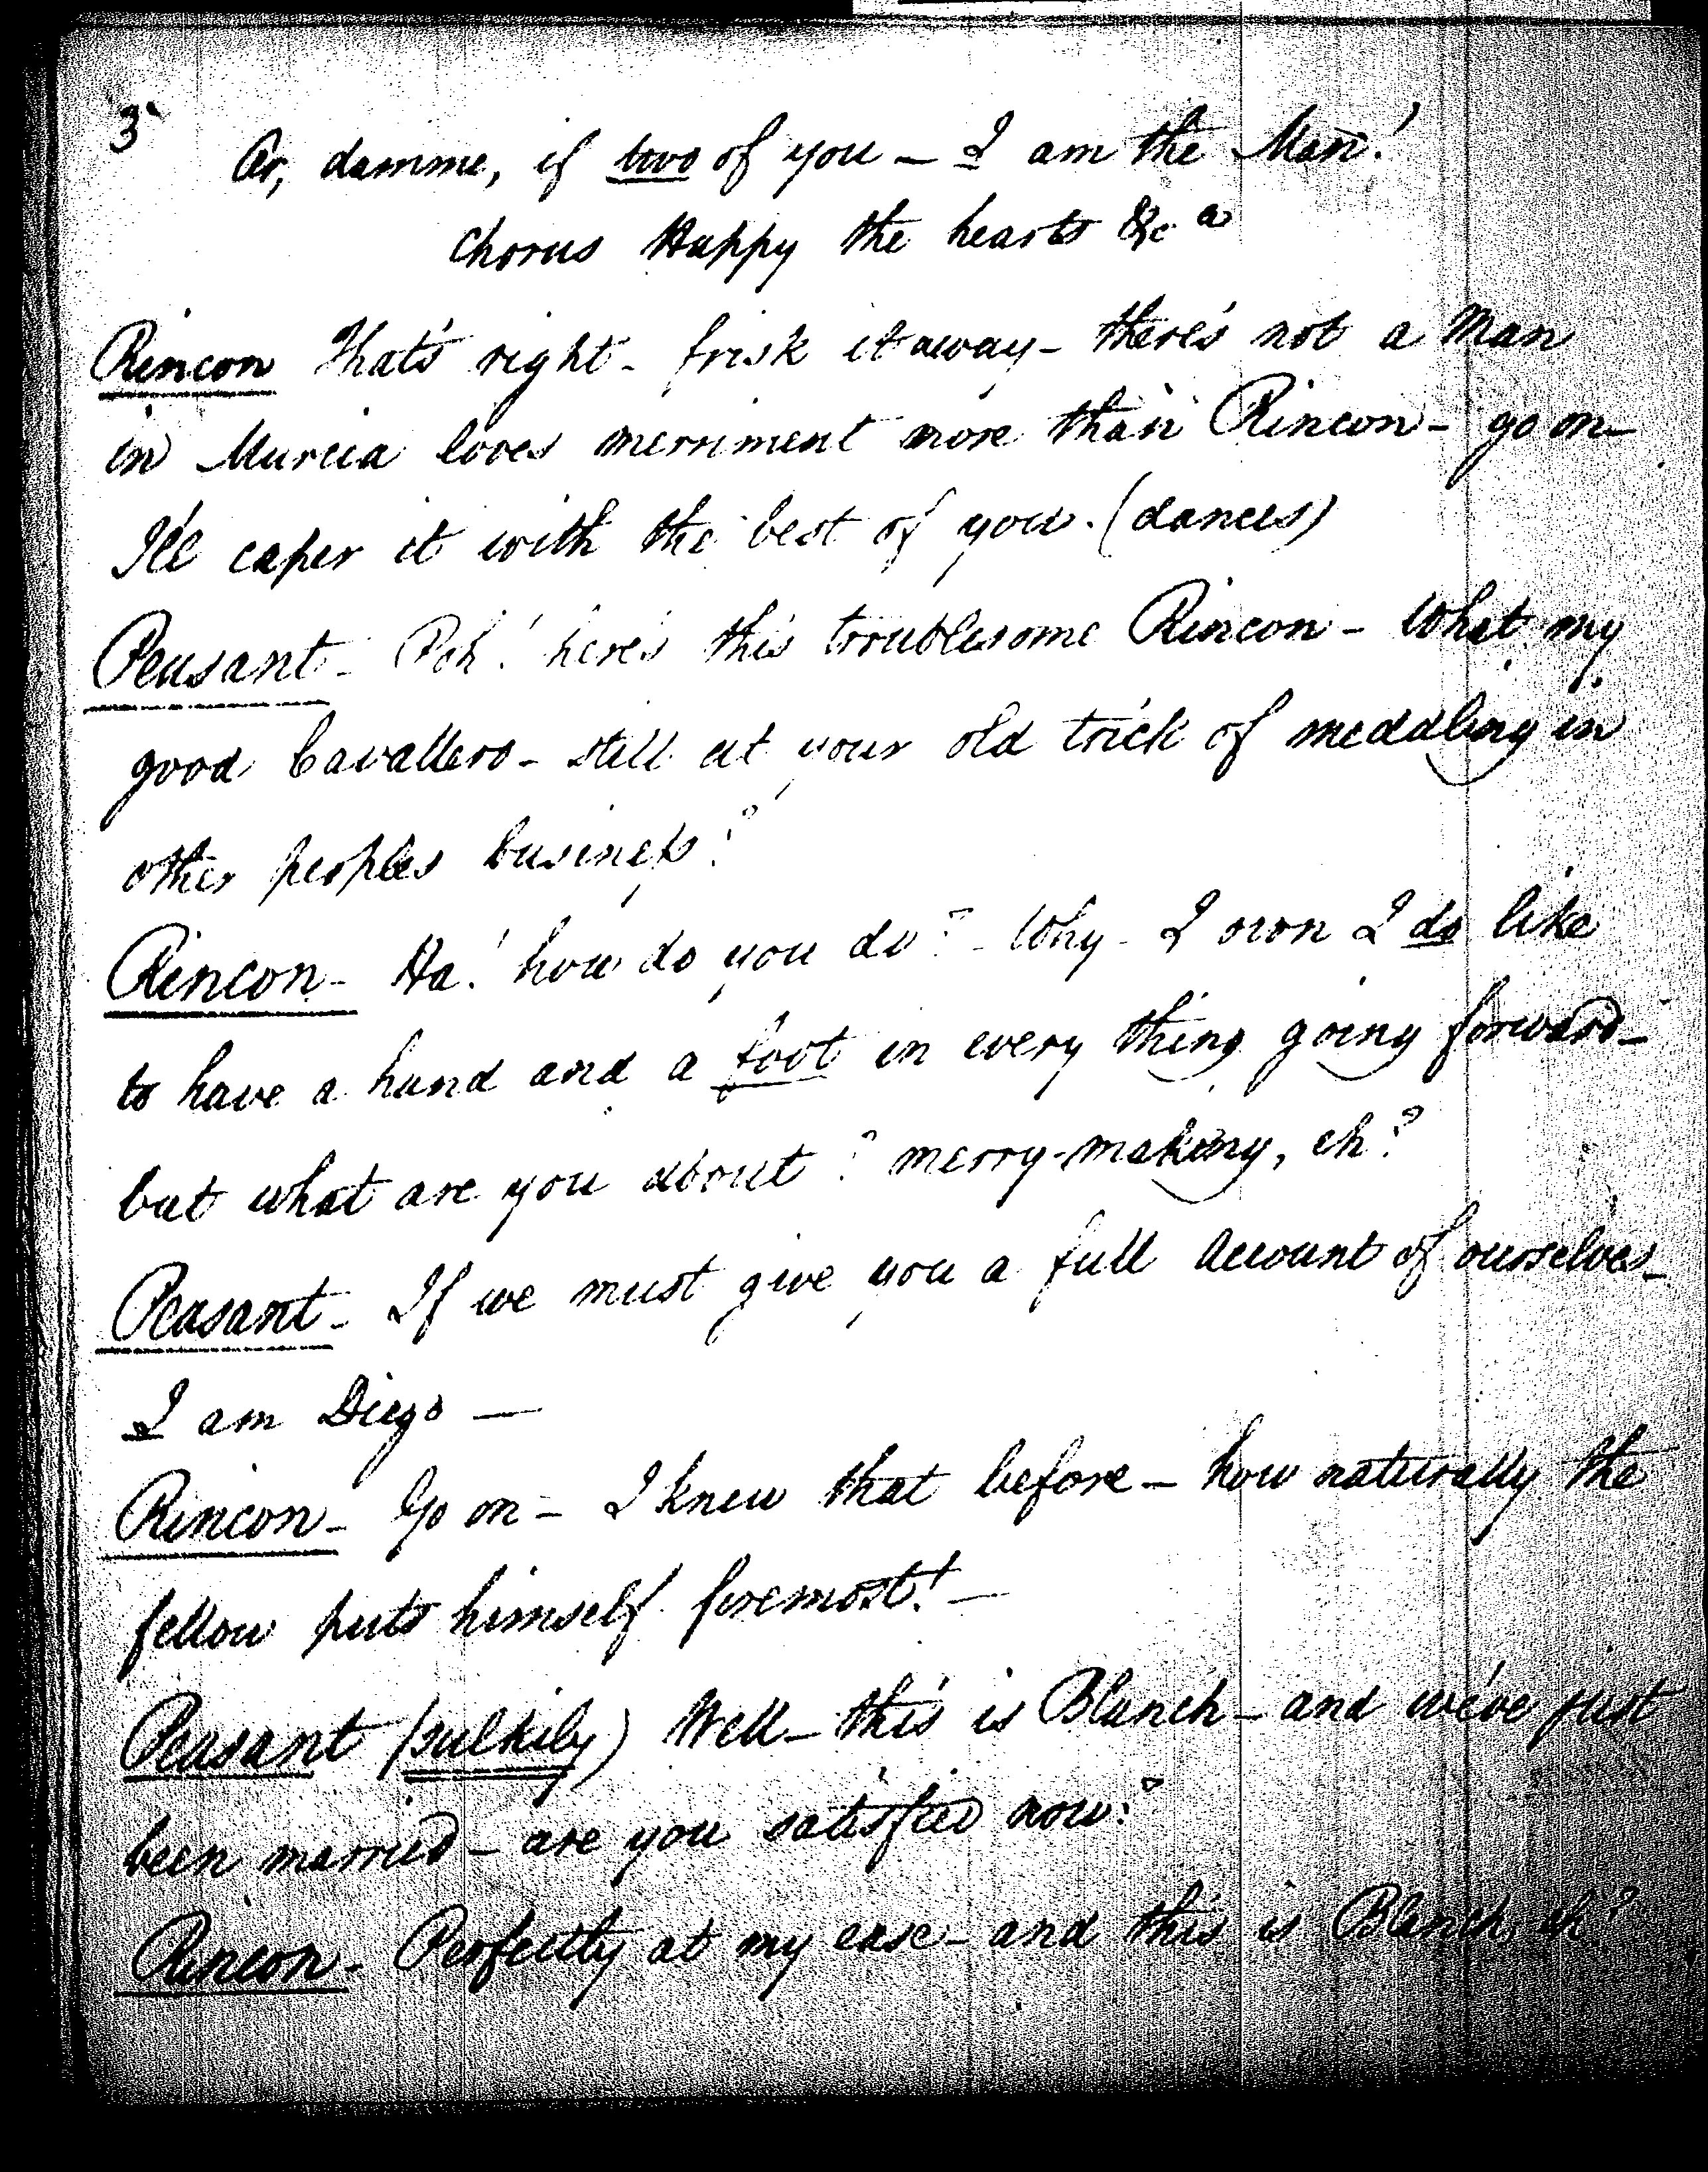 3
Or, damme, if two of you — I am the Man!
Chorus Happy the hearts &c a
Rincon That's right - frisk it away - there's not a Man
in Murcia loves merriment more than Rincon - go on -
I'll caper it with the best of you. (dances)
Peasant - Poh! here's this troublesome Rincon - What my
good Cavallero - still at your old trick of meddling in
other peoples business?
Rincon - Ha! how do you do? - Why - I own I do like
to have a hand and a foot in every thing going forward -
but what are you about? merry-making, eh?
Peasant - If we must give you a full account of ourselves -
I am Diego —
Rincon - Go on - I knew that before - how naturally the
fellow puts himself foremost! —
Peasant (sulkily) Well - this is Blanch - and we've just
been married - are you satisfied now?
Rincon - Perfectly at my ease - and this is Blanch, eh?